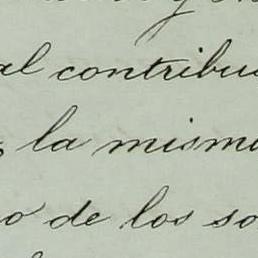 al contribu
la misma
o de los so